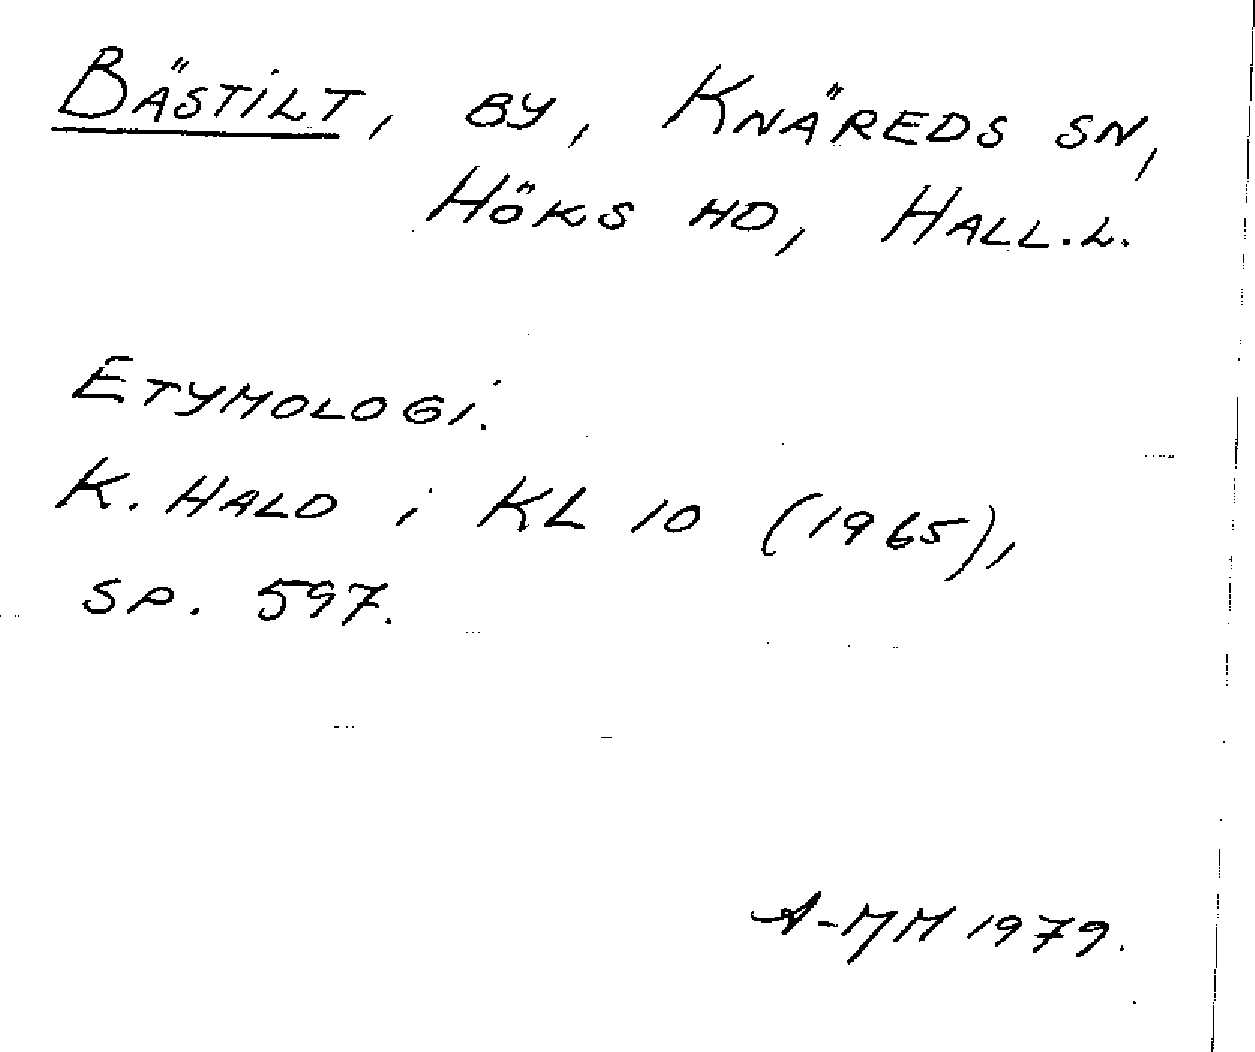 Bästilt, by, Knäreds sn,
Höks hd, Hall.l.
Etymologi.
K. Hald i KL 10 (1965),
sp. 597.
A-MM 1979.